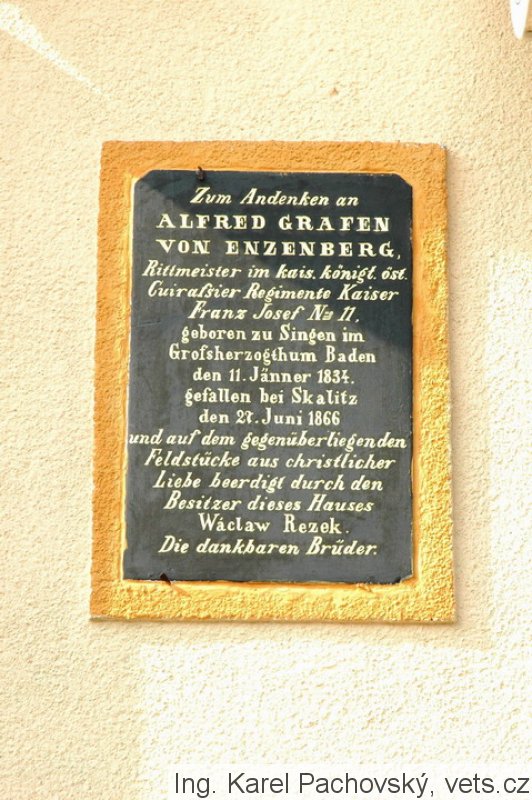 Zum Andenken an
ALFRED GRAFEN
VON ENZENBERG,
Rittmeister im kais. königl. öst.
Cuiraſsier Regimente Kaiser
Franz Josef No 11,
geboren zu Singen im
Groſsherzogthum Baden
den 11. Jänner 1834.
gefallen bei Skalitz
den 27. Juni 1866
und auf dem gegenüberliegenden
Feldstücke aus christlicher
Liebe beerdigt durch den
Besitzer dieses Hauses
Wáclaw Rezek.
Die dankbaren Brüder.
Ing. Karel Pachovský, vets.cz